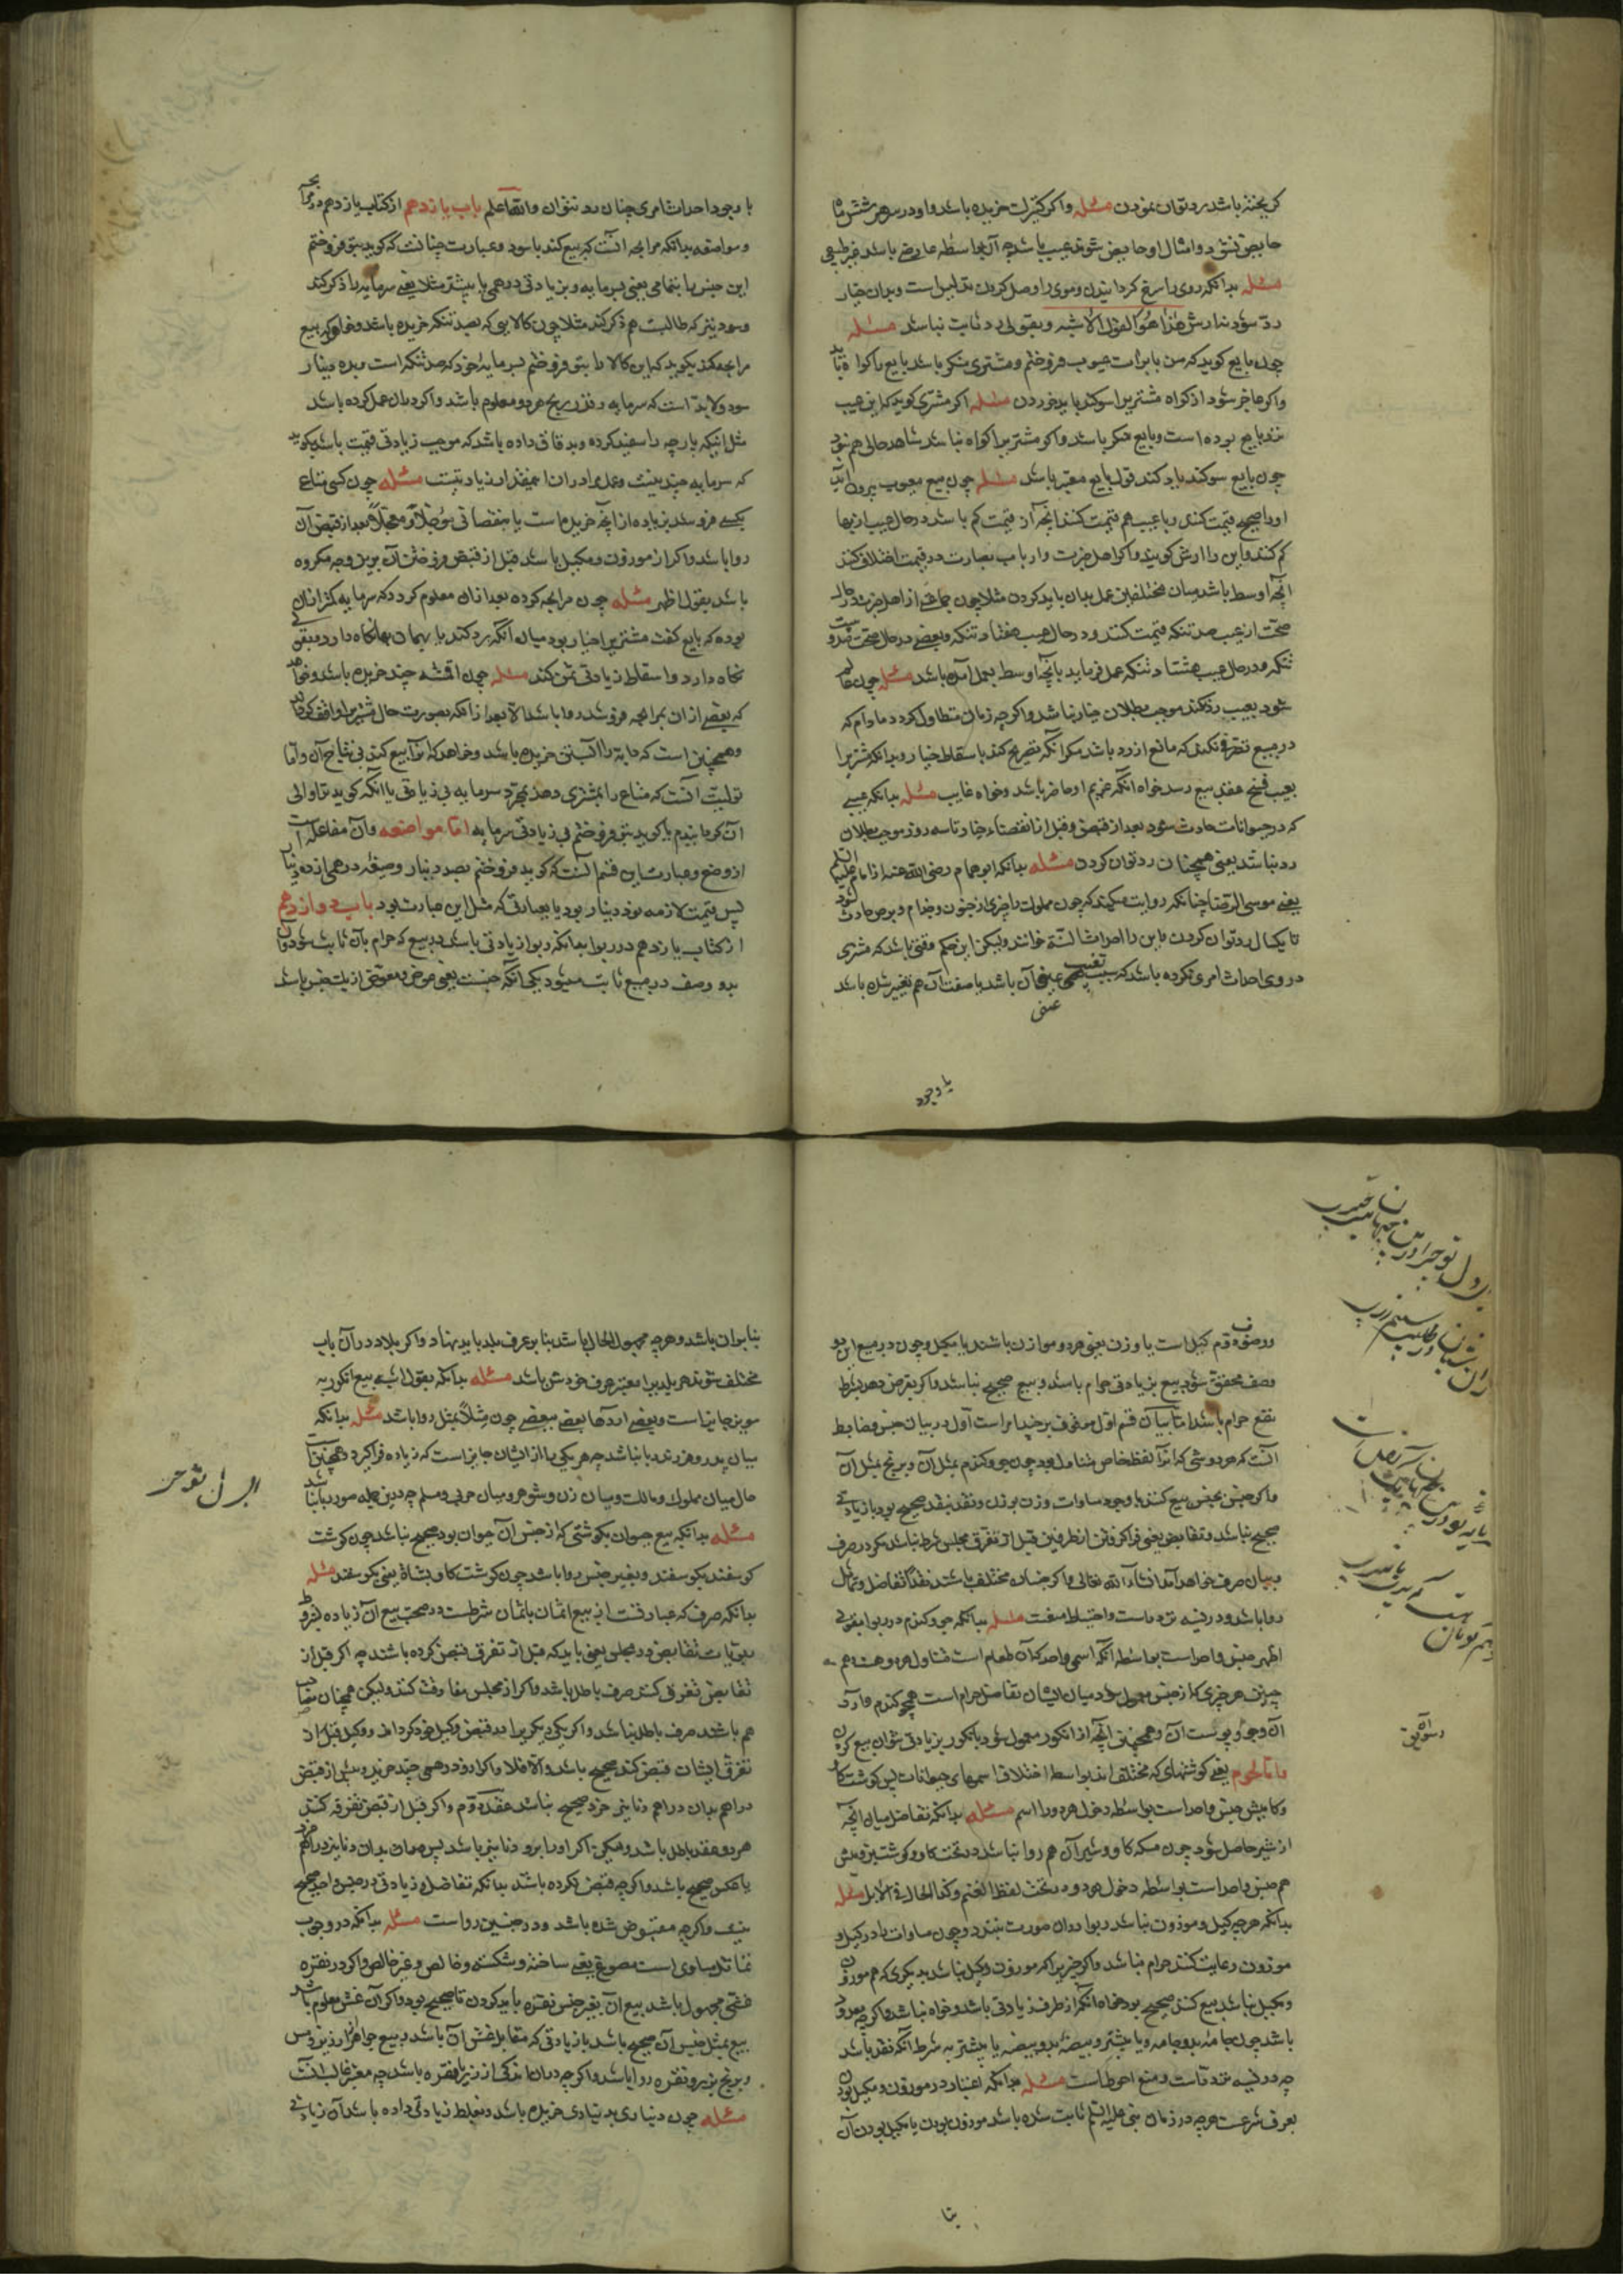 کریخته باشد رد توان نمودن مسئله واگر کنیزک خریده باشد و او در سر هر شش ماه
حایض نشود و امثال او حایض شوند عیب باشد چه آن بواسطه عارضی باشد غیر طبیعی
مسئله بدانکه روی را سرخ کردانیدن و موی را وصل کردن تدلیس است و بدان خیار
ردّ شود نه ارش هٰذا هُوَ القول الاشبه و بقولی رد ثابت نباشد مسئله
چون بایع کوید که من با برات عیوب فروختم و مشتری منکر باشد بایع را کواه باید
واکر عاجز شود از کواه مشتریرا سوکند باید خوردن مسئله اکر مشتری کوید که این عیب
نزد بایع بوده است و بایع منکر باشد واکر مشتریرا کواه نباشد شاهد حالی هم نبود
چون بایع سوکند یاد کند قول بایع معتبر باشد مسئله چون مبیع معیوب بیرون آید
او را صحیح قیمت کنند و با عیب هم قیمت کنند آنچه از قیمت کم باشد در حال عیب از بها
کم کنند و این را ارش کویند واکر اهل خبرت و ارباب بصارت در قیمت اختلاف کنند
آنچه اوسط باشد میان مختلفین عمل بدان باید کردن مثلا چون جماعتی از اهل خبرت در حال
صحّت از عیب صد تنکه قیمت کنند و در حال عیب هفتاد تنکه و بعضی در حال صحّت صد و بیست
تنکه و در حال عیب هشتاد تنکه عمل فرماید بآنچه اوسط بعمل آمده باشد مسئله چون عالم
شود بعیب و رد نکند موجب بطلان خیار نباشد واکر چه زمان متطاول کردد مادام که
در مبیع تصرفی نکند که مانع از رد باشد مکر آنکه تصریح کند باسقاط خیار و بدانکه مشتریرا
بعیب فسخ عقد بیع رسد خواه آنکه غریم او حاضر باشد و خواه غایب مسئله بدانکه عیبی
که در حیوانات حادث شود بعد از قبض و قبل از انقضاء خیار تا سه روز موجب بطلان
رد نباشد یعنی همچنان رد توان کردن مسئله بدانکه ابو همام رضی الله عنه از امام علیه السلام
یعنی موسی الرضا چنانکه روایت میکند که چون مملوک را چیزی از جنون و جذام و برص حادث شود
تا یکسال رد توان کردن و این را احداث السنة خوانند ولیکن این حکم وقتی باشد که مشتری
در وی احداث امری نکرده باشد که سبب تغییر عین آن باشد یا صفت آن هم تغییر شده باشد
عینی
با وجود
با وجود احداث امری چنان رد نتوان والله اعلم باب یازدهم از کتاب یازدهم در مرابحه
و مواضعه بدانکه مرابحه آنست که بیع کند با سود و عبارت چنانست که کوید بتو فروختم
این جنس را بتمامی یعنی بسرمایه و بزیادتی درهمی یا بیشتر مثلا یعنی سرمایه را ذکر کند
و سود نیز که طالبست هم ذکر کند مثلا چون کالایی که بصد تنکه خریده باشد و خواهد که بیع
مرابحه کند بکوید که این کالا را بتو فروختم بسرمایه خود که صد تنکه است و بده دینار
سود و لابد است که سرمایه و قدر ربح هر دو معلوم باشد واکر در آن عمل کرده باشد
مثل اینکه پارچه را سفید کرده و بدقاقی داده باشد که موجب زیادتی قیمت باشد بکوید
که سرمایه چندینست و عمل مرا در آن اینقدر از زیادتیست مسئله چون کسی متاع
بکسی فروشد بزیاده از آنچه خریده است یا بنقصانی مؤجلاً و معجّلاً بعد از قبض آن
روا باشد واکر از موزون و مکیل باشد قبل از قبض فروختن آن برین وجه مکروه
باشد بقول اظهر مسئله چون مرابحه کرده بعد از آن معلوم کردد که سرمایه کمتر از آن
بوده که بایع کفت مشتریرا خیار بود میان آنکه رد کند یا بهمان بها نکاه دارد و بیقین
نکاه دارد و اسقاط زیادتی ثمن کند مسئله چون اقمشه چند خریده باشد و خواهد
که بعضی از آن بمرابحه فروشد روا باشد الا بعد از آنکه بصورت حال مشتریرا واقف کرداند
و همچنین است که دابه را آبستن خریده باشد و خواهد که آنرا بیع کند بی نتاج آن و اما
تولیت آنست که متاع را بمشتری دهد بمجرد سرمایه بی زیادتی یا آنکه کوید ترا والی
آن کردانیدم یا کوید بتو فروختم بی زیادتی سرمایه امّا مواضعه و آن مفاعله است
از وضع و عبارت این قسم آنست که کوید فروختم بصد دینار و ضیعه درهمی از ده دینار
پس قیمت لازمه نود دینار بود یا بعبارتی که مثل این عبارت بود باب دوازدهم
از کتاب یازدهم در ربوا بدانکه ربوا زیادتی باشد در بیع که حرام بآن ثابت شود و آن
بدو وصف در مبیع ثابت میشود یکی آنکه جنسیت یعنی عوض و معوض از یک جنس باشد
و وصف دوم کیل است یا وزن یعنی هر دو موازن باشند یا مکیل و چون در مبیع این دو
وصف محقق شود بیع بزیادتی حرام باشد و بیع صحیح نباشد واکر بقرض دهد بشرط
نفع حرام باشد امّا بیان قسم اول موقوف بر چند امر است اول در بیان جنس و ضابط
آنست که هر دو شئی که آنرا لفظ خاص متناول بود چون جو و کندم بمثل آن و برنج بمثل آن
واکر جنس بجنس بیع کنند با وجود مساوات وزن بوزن و نقد بنقد صحیح بود با زیادتی
صحیح نباشد و تقابض یعنی فرا کرفتن از طرفین قبل از تفرق مجلس شرط نباشد مکر در صرف
و بیان صرف خواهد آمد انشاء الله تعالی واکر جنسان مختلف باشند نقداً تفاضل و تماثل
روا باشد و در نسیه تردد است و احتیاط منعست مسئله بدانکه جو و کندم در ربوا بقولی
اظهر جنس واحد است بواسطه آنکه اسمی واحد که آن طعام است متناول هر دو هست و هم
چنین هر چیزی که از جنس معمول بود میان ایشان تفاضل حرام است همچو کندم و آرد
آن و جو و پوست آن و همچنین آنچه از انکور معمول شود بانکور بزیادتی نتوان بیع کردن
و امّا لحوم یعنی کوشتهای که مختلف اند بواسطه اختلاف اسمهای حیوانات پس کوشت کاو
و کامیش جنس واحد است بواسطه دخول هر دو را اسم مسئله بدانکه تفاضل میان آنچه
از شیر حاصل شود چون مسکه کاو و شیر آن هم روا نباشد و تحت کاو و کوشت بز و میش
هم جنس واحد است بواسطه دخول هر دو در تحت لفظ الغنم وکذا الحال فی الابل مسئله
بدانکه هر چه کیل و موزون نباشد ربوا در آن صورت نبندد و چون مساوات را در کیل و
موزون رعایت کنند حرام نباشد واکر چیزیرا که موزون و مکیل نباشد بدیکری که هم موزون
و مکیل نباشد بیع کنند صحیح بود خواه آنکه از طرف زیادتی باشد و خواه نباشد واکر چه معدود
باشد چون جامه بدو جامه و یا بیشتر و بیضه بدو بیضه یا بیشتر به شرط آنکه نقد باشد
چه در نسیه تردد است و منع احوط است مسئله بدانکه اعتبار در موزون و مکیل بودن
بعرف شرعست هر چه در زمان نبی علیه السلم ثابت شده باشد موزون بودن یا مکیل بودن آن
بنا
بنا بر آن باشد و هر چه مجهول الحال باشد بنا بر عرف بلد باید نهاد واکر بلاد در آن باب
مختلف شوند هر بلدیرا معتبر عرف خودش باشد مسئله بدانکه بقول اشبه بیع انکور به
مویز جایز است و بعضی آردها ببعضی چون مثلاً بمثل روا باشد مسئله بدانکه
میان پدر و فرزند ربا نباشد چه هر یکی را از ایشان جایز است که زیاده فرا کیرد و همچنین
حال میان مملوک و مالک و میان زن و شوهر و میان حربی و مسلم چه درین جمله صور ربا نباشد
مسئله بدانکه بیع حیوان بکوشتی که از جنس آن حیوان بود صحیح نباشد چون کوشت
کوسفند بکوسفند و بغیر جنس روا باشد چون کوشت کاو بشاة یعنی بکوسفند مسئله
بدانکه صرف که عبارتست از بیع اثمان باثمان شرطست در صحت بیع آن زیاده بشروط
ربویات تقابض در مجلس یعنی باید که قبل از تفرق قبض کرده باشند چه اکر قبل از
تقابض تفرق کنند صرف باطل باشد واکر از مجلس مفارقت کنند ولیکن همچنان مصاحب
هم باشند صرف باطل نباشد واکر یکی دیکریرا در قبض وکیل خود کرداند و وکیل قبل از
تفرق ایشان قبض کند صحیح باشد والا فلا واکر ازو درهمی چند خرید و پیش از قبض
دراهم بدان دراهم دنانیر خرد صحیح نباشد عقد دوم واکر قبل از قبض تفرقه کنند
هر دو عقد باطل باشد
یا عکس صحیح باشد واکر چه قبض نکرده باشد بدانکه تفاضل و زیادتی در جنس واحد صحیح
نیست واکر چه مقبوض شده باشد و در جنسین رواست مسئله بدانکه در وجوب
تماثل مساوی است مصوغ یعنی ساخته و شکسته و خالص و غیر خالص واکر در نقره
غشی مجهول باشد بیع آن بغیر جنس نقره باید کردن تا صحیح بود واکر آن غش معلوم باشد
بیع بمثل جنس آن صحیح باشد با زیادتی که مقابل غش آن باشد
و برنج بزر و نقره روا باشد واکر چه در آن اندکی از زر یا نقره باشد چه معتبر غالب آنست
مسئله چون دیناری بدیناری خریده باشد و بغلط زیادتی داده باشد آن زیادتی